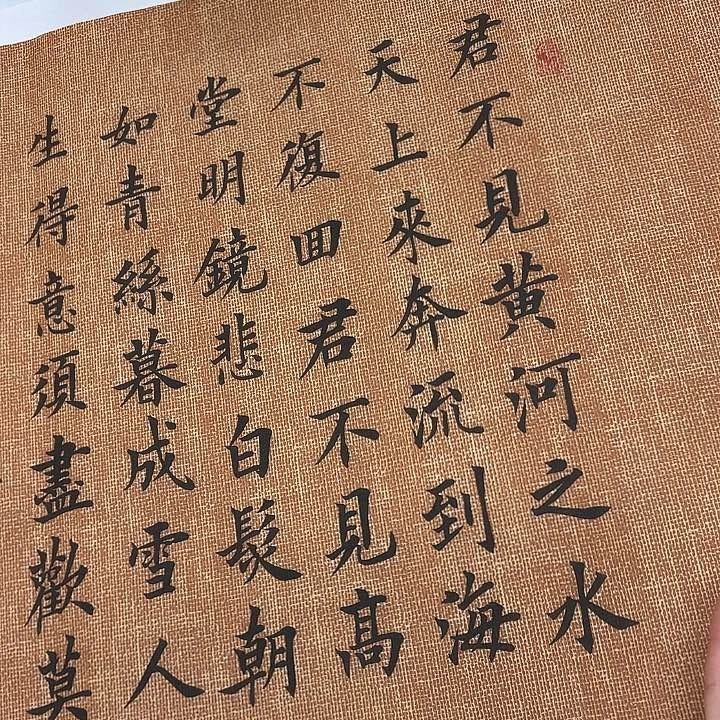 君不見黄河之水
天上來奔流到海
不復回君不見髙
堂明鏡悲白髮朝
如青絲暮成雪人
生得意須盡歡莫